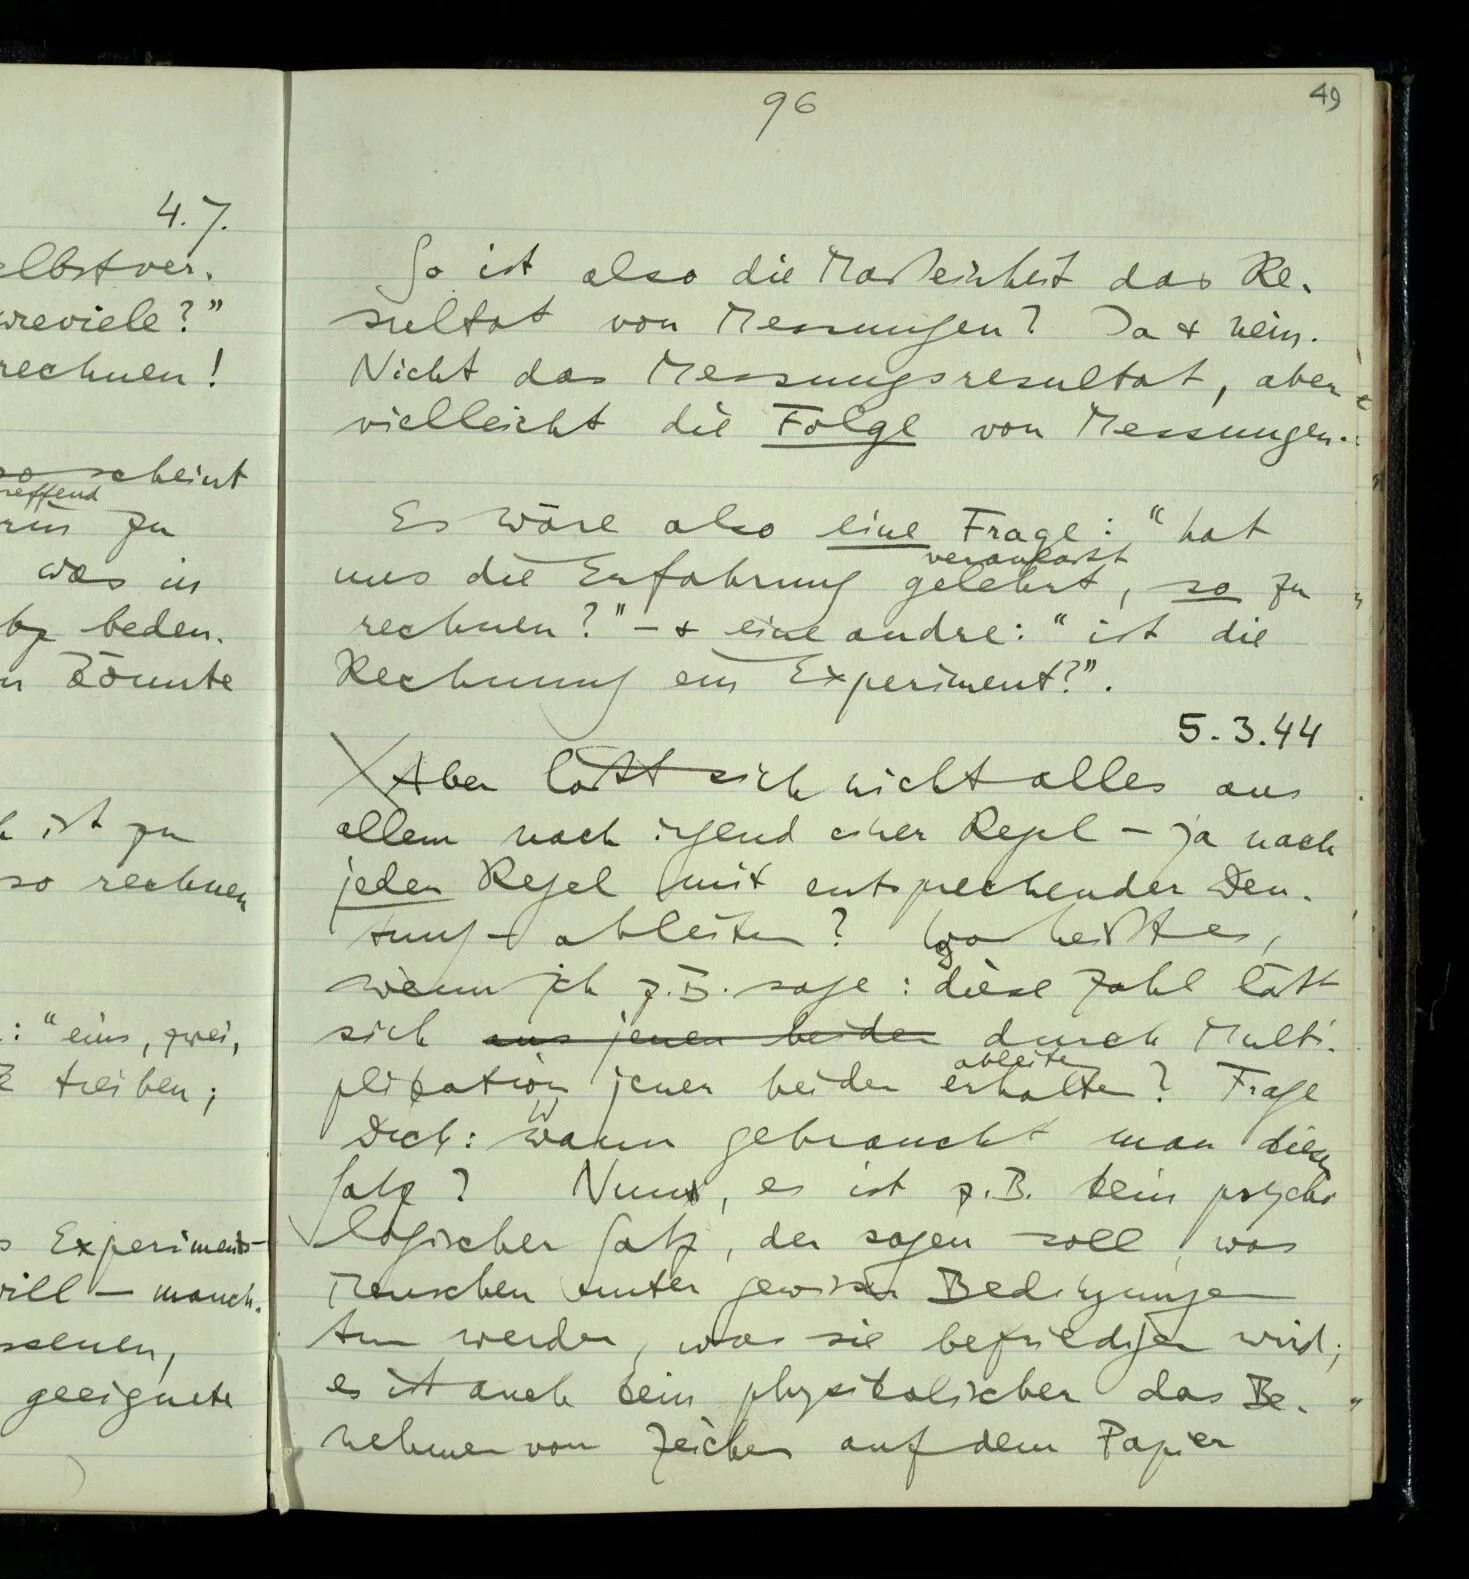 4.7.
elbstver-
wieviele?"
rechnen!
so scheint
reffend
zu
was in
beden-
könnte
ist zu
so rechnen
: "eins, zwei,
treiben;
Experiments-
will – manch-
ssenen,
geeignete
96
49
So ist also die Maßeinheit das Re-
sultat von Messungen? Ja & nein.
Nicht das Messungsresultat, aber
vielleicht die Folge von Messungen.
Es wäre also eine Frage: "hat
veranlaßt
uns die Erfahrung gelehrt, so zu
rechnen?" – & eine andre: "ist die
Rechnung ein Experiment?".
5.3.44
Aber läßt sich nicht alles aus
allem nach irgend einer Regel – ja nach
jeder Regel mit entsprechender Deu-
tung – ableiten? Was heißt es,
wenn ich z.B. sage: diese Zahl läßt
sich aus jenen beiden durch Multi-
ableiten
plikation jener beiden erhalten? Frage
Dich: Wann gebraucht man diesen
Satz? Nun, es ist z.B. kein psycho
logischer Satz, der sagen soll, was
Menschen unter gewissen Bedingungen
tun werden, was sie befriedigen wird;
es ist auch kein physikalischer das Be-
nehmen von Zeichen auf dem Papier